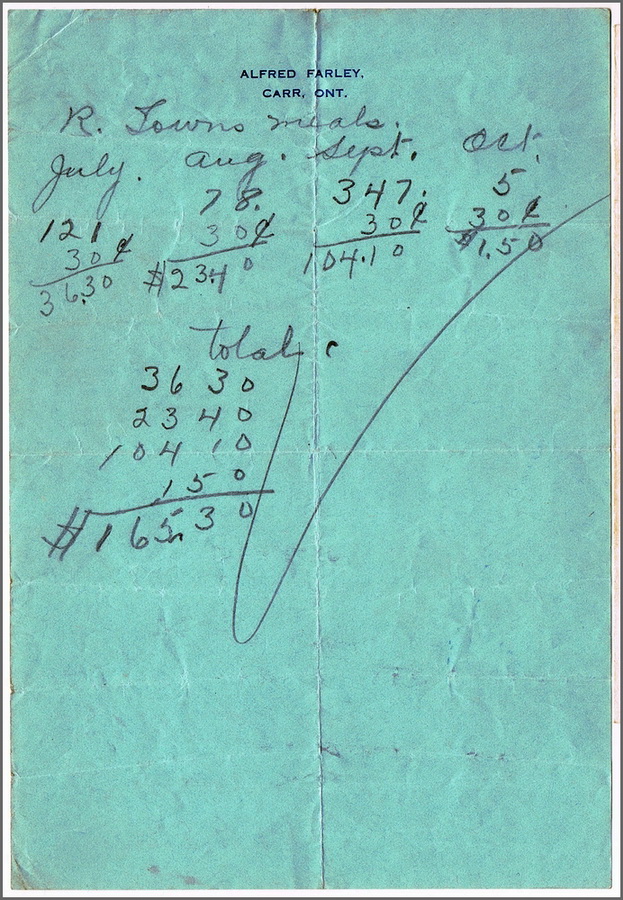 ALFRED FARLEY,
CARR, ONT.
R. Towns meals.
July. Aug. Sept. Oct.
121 78. 347. 5
30¢ 30¢ 30¢ 30¢
36.30 $23.40 104.10 $1.50
total
36 30
23 40
104 10
1 50
$165.30